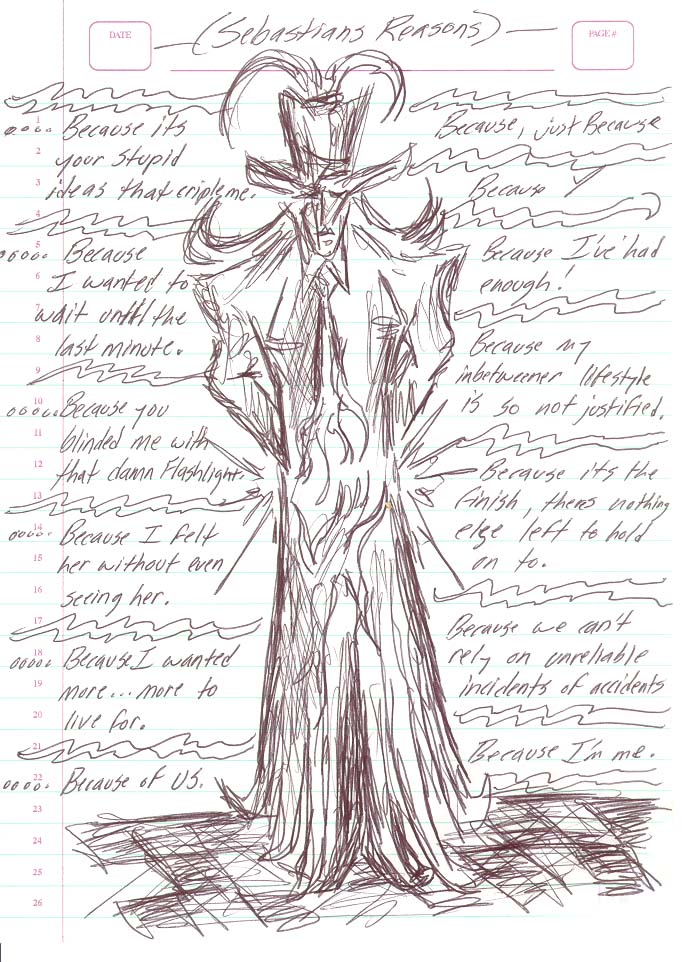 DATE
(Sebastians Reasons)
PAGE #
Because its
your stupid
ideas that cripleme.
Because
I wanted to
wait until the
last minute.
Because you
blinded me with
that damn Flashlight.
Because I felt
her without even
seeing her.
Because I wanted
more... more to
live for.
Because of US.
Because, just Because
Because Y
Because I've had
enough!
Because my
inbetweener lifestyle
is so not justified.
Because its the
Finish, theres nothing
else left to hold
on to.
Because we can't
rely on unreliable
incidents of accidents
Because I'm me.
1
2
3
4
5
6
7
8
9
10
11
12
13
14
15
16
17
18
19
20
21
22
23
24
25
26